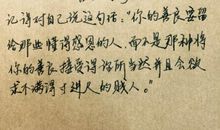 记得对自己说这句话:“你的善良要留
给那些懂得感恩的人,而不是那种将
你的善良接受得理所当然并且会欲
求不满得寸进尺的贱人。”